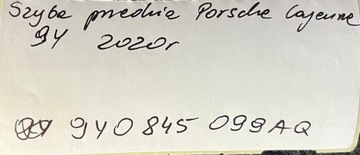 Szyba przednia Porsche Cayenne
9Y 2020r
9Y0 845 099 AQ